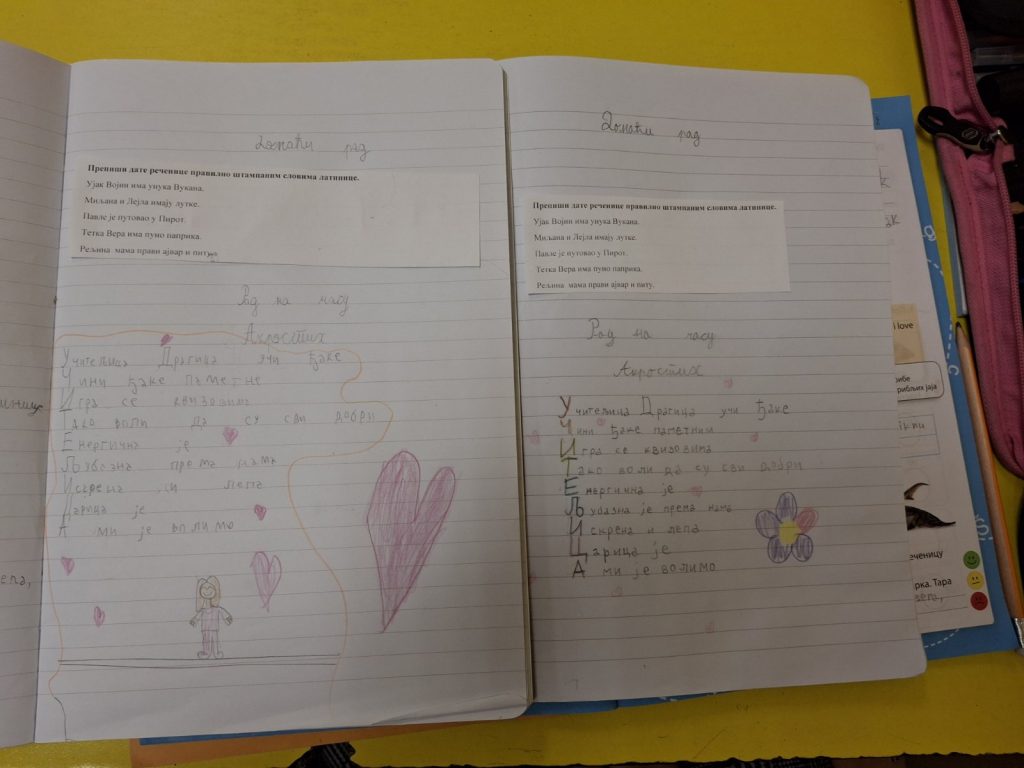 Домаћи рад
Препиши дате реченице правилно штампаним словима латинице.
Ујак Војин има унука Вукана.
Миљана и Лејла имају лутке.
Павле је путовао у Пирот.
Тетка Вера има пуно паприка.
Рељина мама прави ајвар и питу.
Рад на часу
Акростих
Учитељица Драгица учи ђаке
Чини ђаке паметне
Игра се квизовим
Тако воли да су сви добри
Енергична је
Љубазна према нама
Искрена и лепа
Царица је
А ми је волимо
Домаћи рад
Препиши дате реченице правилно штампаним словима латинице.
Ујак Војин има унука Вукана.
Миљана и Лејла имају лутке.
Павле је путовао у Пирот.
Тетка Вера има пуно паприка.
Рељина мама прави ајвар и питу.
Рад на часу
Акростих
Учитељица Драгица учи ђаке
Чини ђаке паметним
Игра се квизовима
Тако воли да су сви добри
Енергична је
Љубазна је према нама
Искрена и лепа
Царица је
А ми је волимо
i love
рибе
рибљих јаја
еченицу
рка. Тара